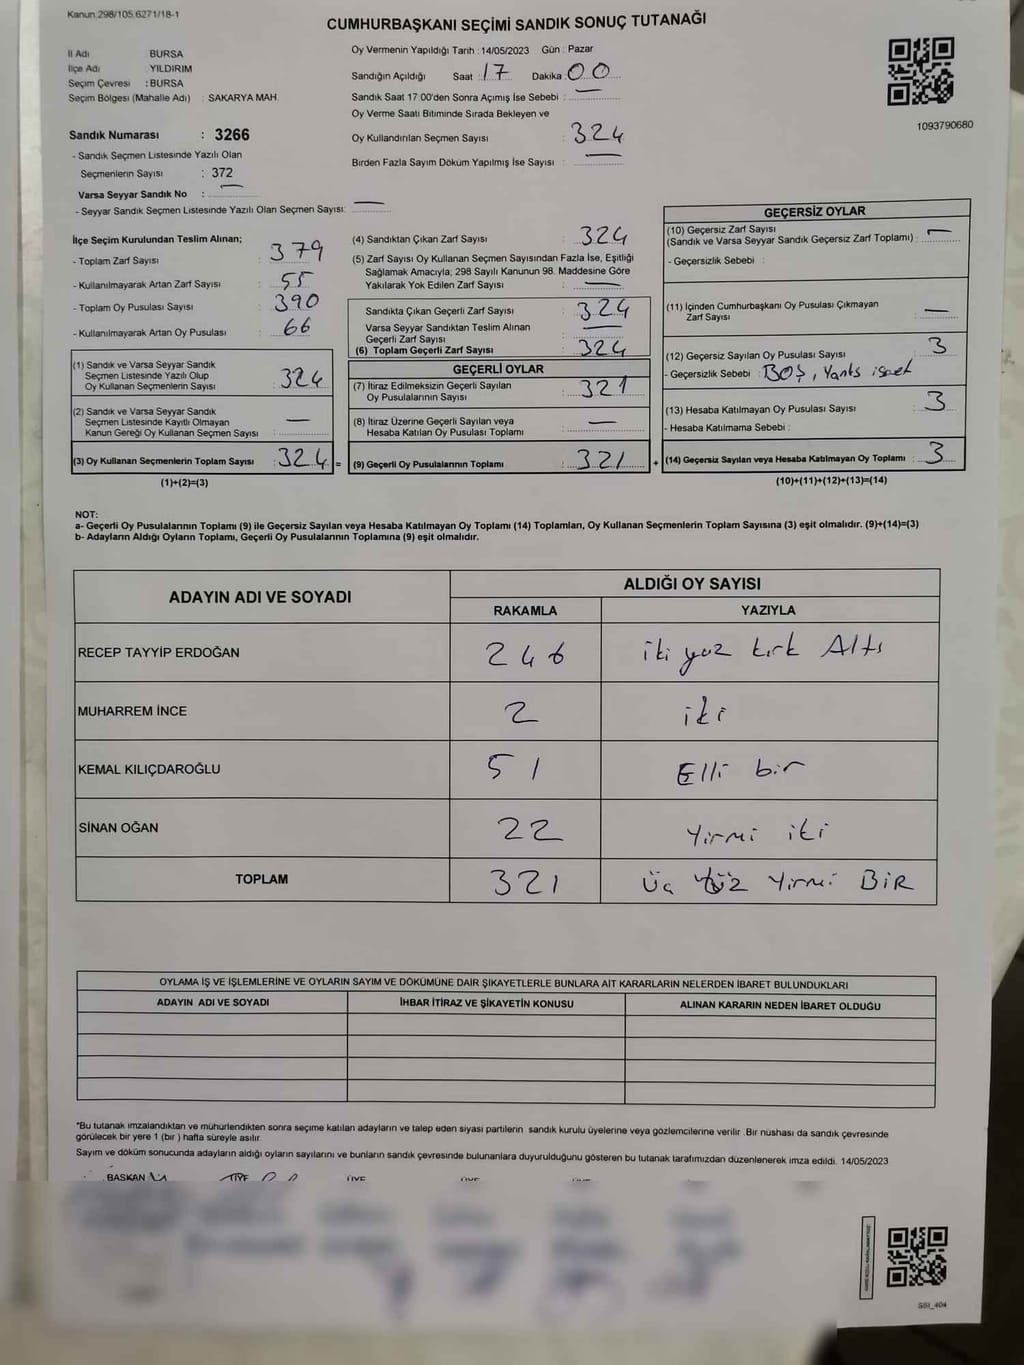 Kanun:298/105,6271/18-1
CUMHURBAŞKANI SEÇİMİ SANDIK SONUÇ TUTANAĞI
İl Adı BURSA
İlçe Adı : YILDIRIM
Seçim Çevresi : BURSA
Seçim Bölgesi (Mahalle Adı) : SAKARYA MAH.
Sandık Numarası : 3266
- Sandık Seçmen Listesinde Yazılı Olan
Seçmenlerin Sayısı : 372
Varsa Seyyar Sandık No : —
- Seyyar Sandık Seçmen Listesinde Yazılı Olan Seçmen Sayısı: —
Oy Vermenin Yapıldığı Tarih : 14/05/2023 Gün : Pazar
Sandığın Açıldığı Saat : 17 Dakika 00
Sandık Saat 17:00'den Sonra Açımış İse Sebebi : —
Oy Verme Saati Bitiminde Sırada Bekleyen ve
Oy Kullandırılan Seçmen Sayısı : 324
Birden Fazla Sayım Döküm Yapılmış İse Sayısı : —
1093790680
İlçe Seçim Kurulundan Teslim Alınan;
- Toplam Zarf Sayısı : 379
- Kullanılmayarak Artan Zarf Sayısı : 55
- Toplam Oy Pusulası Sayısı : 390
- Kullanılmayarak Artan Oy Pusulası : 66
(1) Sandık ve Varsa Seyyar Sandık
Seçmen Listesinde Yazılı Olup
Oy Kullanan Seçmenlerin Sayısı : 324
(2) Sandık ve Varsa Seyyar Sandık
Seçmen Listesinde Kayıtlı Olmayan
Kanun Gereği Oy Kullanan Seçmen Sayısı : —
(3) Oy Kullanan Seçmenlerin Toplam Sayısı : 324 =
(1)+(2)=(3)
(4) Sandıktan Çıkan Zarf Sayısı : 324
(5) Zarf Sayısı Oy Kullanan Seçmen Sayısından Fazla İse, Eşitliği
Sağlamak Amacıyla; 298 Sayılı Kanunun 98. Maddesine Göre
Yakılarak Yok Edilen Zarf Sayısı : —
Sandıkta Çıkan Geçerli Zarf Sayısı : 324
Varsa Seyyar Sandıktan Teslim Alınan
Geçerli Zarf Sayısı : —
(6) Toplam Geçerli Zarf Sayısı : 324
GEÇERLİ OYLAR
(7) İtiraz Edilmeksizin Geçerli Sayılan
Oy Pusulalarının Sayısı : 321
(8) İtiraz Üzerine Geçerli Sayılan veya
Hesaba Katılan Oy Pusulası Toplamı : —
(9) Geçerli Oy Pusulalarının Toplamı : 321 +
GEÇERSİZ OYLAR
(10) Geçersiz Zarf Sayısı
(Sandık ve Varsa Seyyar Sandık Geçersiz Zarf Toplamı) : —
- Geçersizlik Sebebi :
(11) İçinden Cumhurbaşkanı Oy Pusulası Çıkmayan
Zarf Sayısı : —
(12) Geçersiz Sayılan Oy Pusulası Sayısı : 3
- Geçersizlik Sebebi : BOŞ,
(13) Hesaba Katılmayan Oy Pusulası Sayısı : 3
- Hesaba Katılmama Sebebi :
(14) Geçersiz Sayılan veya Hesaba Katılmayan Oy Toplamı : 3
(10)+(11)+(12)+(13)=(14)
NOT:
a- Geçerli Oy Pusulalarının Toplamı (9) ile Geçersiz Sayılan veya Hesaba Katılmayan Oy Toplamı (14) Toplamları, Oy Kullanan Seçmenlerin Toplam Sayısına (3) eşit olmalıdır. (9)+(14)=(3)
b- Adayların Aldığı Oyların Toplamı, Geçerli Oy Pusulalarının Toplamına (9) eşit olmalıdır.
ADAYIN ADI VE SOYADI ALDIĞI OY SAYISI
RAKAMLA YAZIYLA
RECEP TAYYİP ERDOĞAN 246 iki yüz kırk Altı
MUHARREM İNCE 2 iki
KEMAL KILIÇDAROĞLU 51 Elli bir
SİNAN OĞAN 22 Yirmi iki
TOPLAM 321 Üç Yüz Yirmi BİR
OYLAMA İŞ VE İŞLEMLERİNE VE OYLARIN SAYIM VE DÖKÜMÜNE DAİR ŞİKAYETLERLE BUNLARA AİT KARARLARIN NELERDEN İBARET BULUNDUKLARI
ADAYIN ADI VE SOYADI İHBAR İTİRAZ VE ŞİKAYETİN KONUSU ALINAN KARARIN NEDEN İBARET OLDUĞU
*Bu tutanak imzalandıktan ve mühürlendikten sonra seçime katılan adayların ve talep eden siyasi partilerin sandık kurulu üyelerine veya gözlemcilerine verilir .Bir nüshası da sandık çevresinde
görülecek bir yere 1 (bir ) hafta süreyle asılır.
Sayım ve döküm sonucunda adayların aldığı oyların sayılarını ve bunların sandık çevresinde bulunanlara duyurulduğunu gösteren bu tutanak tarafımızdan düzenlenerek imza edildi. 14/05/2023
BAŞKAN ÜYE ÜYE ÜYE ÜYE
SSI_404